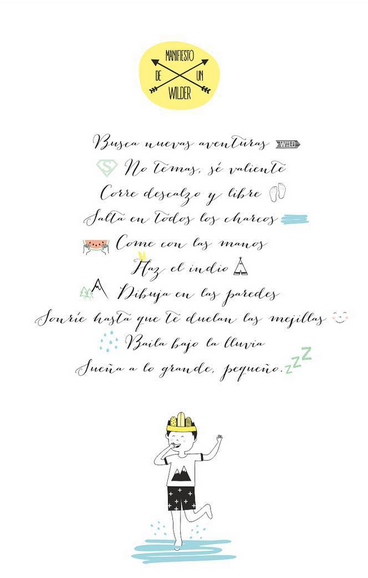 MANIFIESTO
DE UN
WILDER
Busca nuevas aventuras
No temas, sé valiente
Corre descalzo y libre
Salta en todos los charcos
Come con las manos
Haz el indio
Dibuja en las paredes
Sonríe hasta que te duelan las mejillas
Baila bajo la lluvia
Sueña a lo grande, pequeño.
zzz